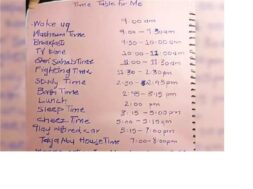 Time Table for Me
Woke up 9:00 am
Washroom Time 9:00 - 9:30 am
Breakfast 9:30 - 10:00 am
TV time 10:00 - 11:00 am
11:00 - 11:30 am
Fighting Time 11:30 - 2:30 pm
Study Time 2:30 - 2:45 pm
Time 2:45 - 3:15 pm
Lunch 2:00 pm
Sleep Time 3:15 - 5:00 pm
Cheez Time 5:00 - 5:15 pm
Play red car 5:15 - 7:00 pm
Taya Abu House Time 7:00 - 8:00 pm